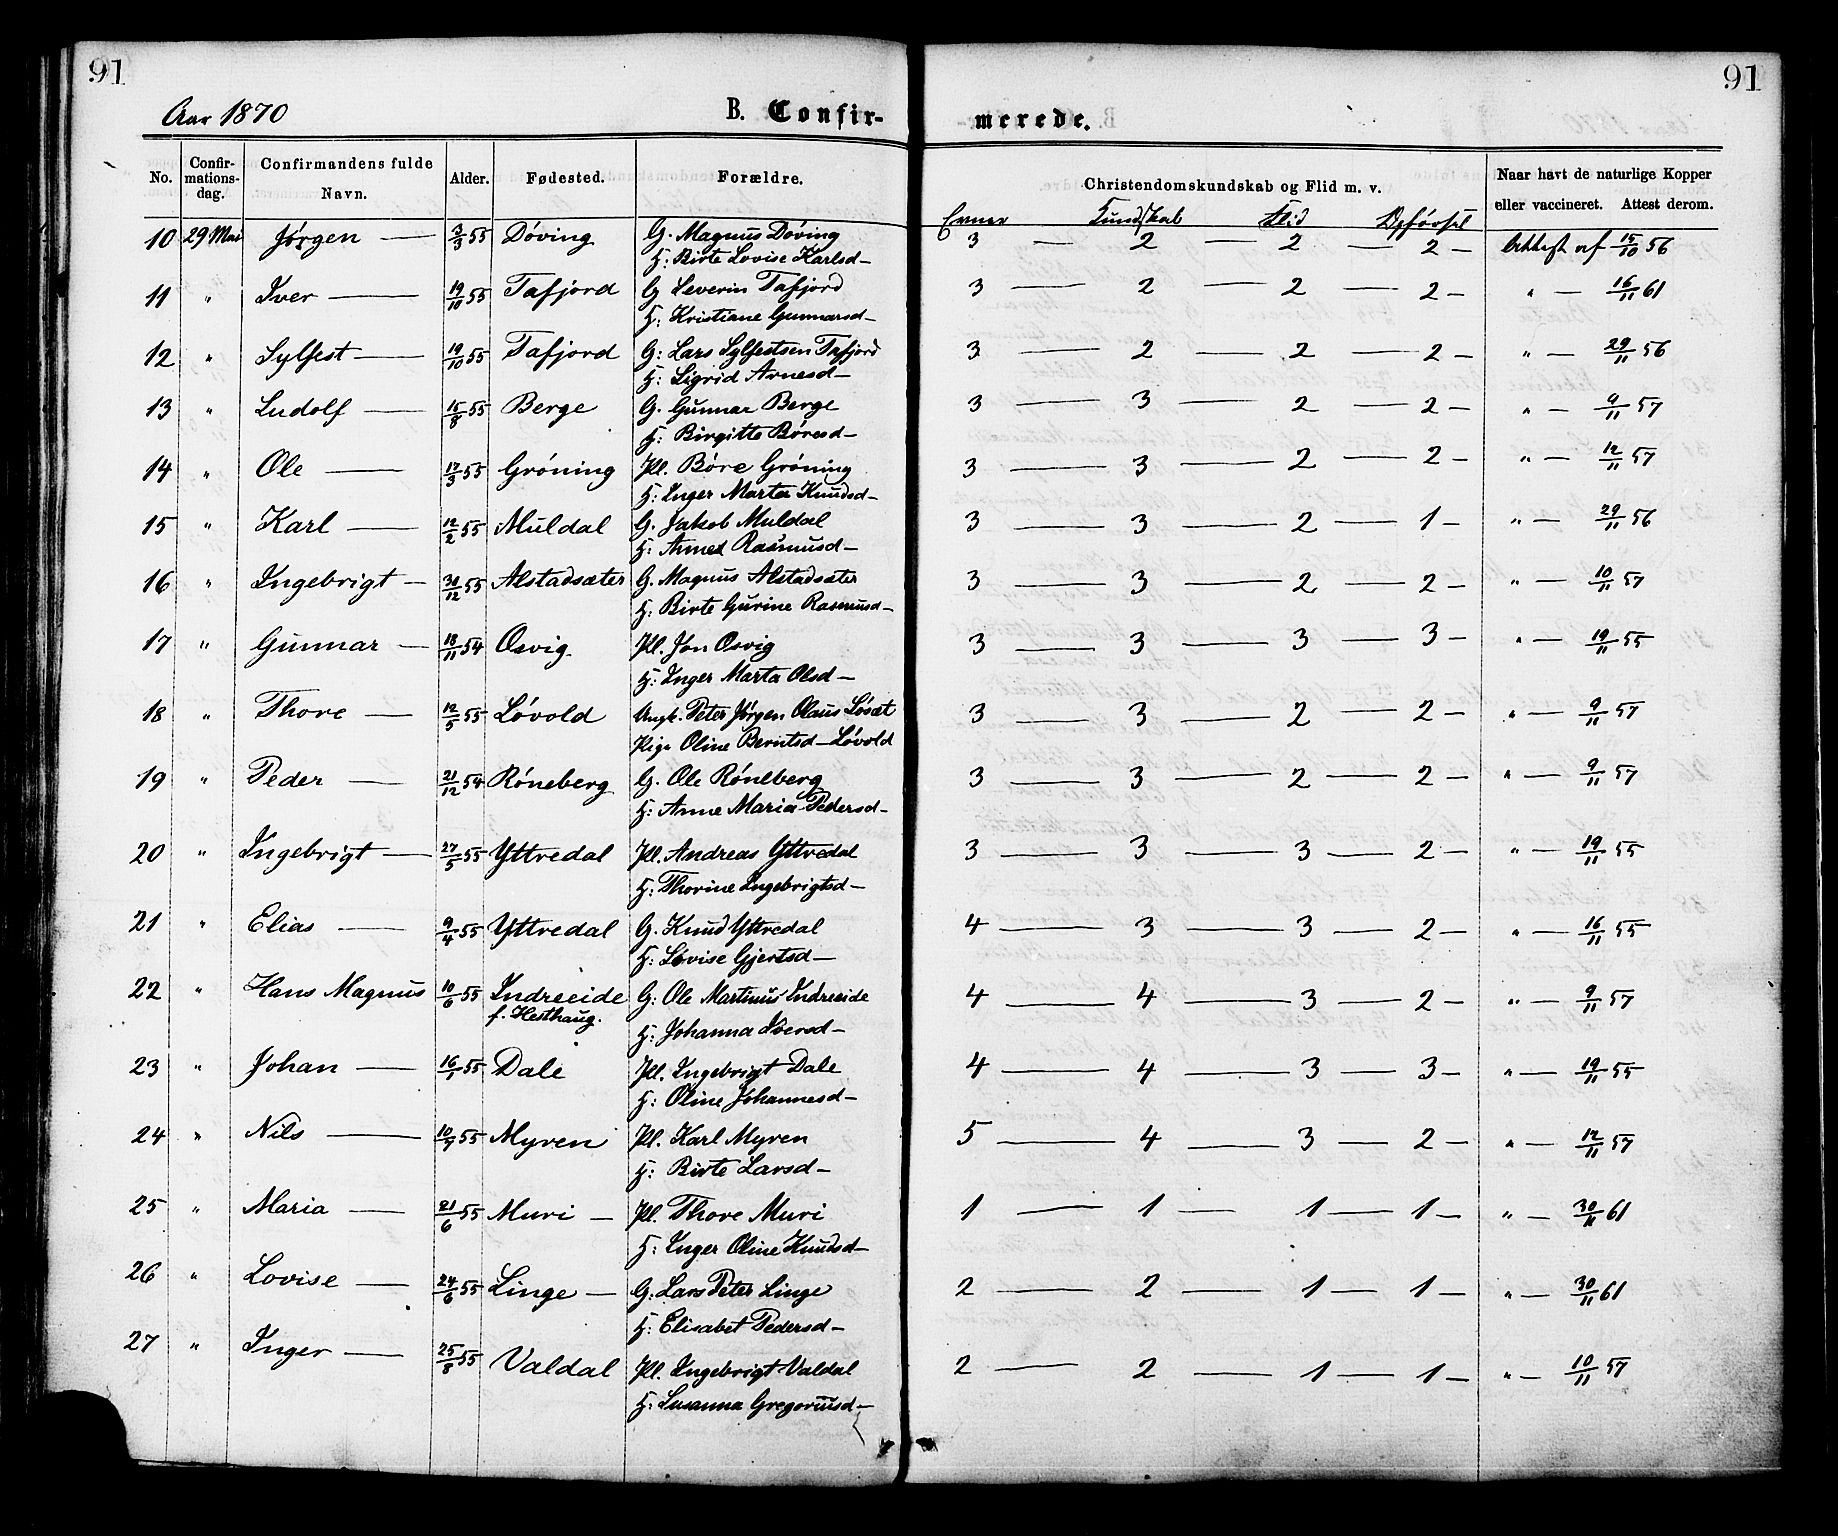 91
91
Aar 1870
B. Confir-
merede.
No.
Confir-
mations-
dag.
Confirmandens fulde
Navn.
Alder.
Fødested.
Forældre.
Christendomskundskab og Flid m. v.
Naar havt de naturlige Kopper
eller vaccineret. Attest derom.
Evner Kundskab Flid Opførsel
10 29 Mai Jørgen — 3/3 55 Døving G. Magnus Døving 3 — 2 — 2 — 2 — Attest af 15/10 56
H: Birte Lovise Karlsd—
11 " Iver — 19/10 55 Tafjord G Severin Tafjord 3 — 2 — 2 — 2 — " — 16/11 61
H: Kristiane Gunnarsd—
12 " Sylfest — 19/10 55 Tafjord G: Lars Sylfestsen Tafjord 3 — 2 — 2 — 2 — " — 29/11 56
H: Sigrid Arnesd—
13 " Ludolf — 15/8 55 Berge G. Gunnar Berge 3 — 3 — 2 — 2 — " — 9/11 57
H: Birgitte Børesd—
14 " Ole — 17/3 55 Grøning Pl. Børe Grøning 3 — 3 — 2 — 2 — " — 12/11 57
H: Inger Marta Knudsd—
15 " Karl — 12/2 55 Muldal G. Jakob Muldal 3 — 3 — 2 — 1 — " — 29/11 56
H: Rasmusd—
16 " Ingebrigt — 30/12 55 Alstadsæter G. Magnus Alstadsæter 3 — 3 — 2 — 2 — " — 10/11 57
H: Birte Gurine Rasmusd—
17 " Gunnar — 18/11 54 Osvig Pl. Jon Osvig 3 — 3 — 3 — 3 — " — 19/11 55
H: Inger Marta Olsd—
18 " Thore — 12/5 55 Løvold Ungk. Peter Jørgen Olaus Løset 3 — 3 — 2 — 2 — " — 9/11 57
Pige Oline Berntsd— Løvold
19 " Peder — 21/12 54 Røneberg G. Ole Røneberg 3 — 3 — 2 — 2 — " — 9/11 57
H: Anne Maria Pedersd—
20 " Ingebrigt — 27/5 55 Yttredal Pl. Andreas Yttredal 3 — 3 — 3 — 2 — " — 19/11 55
H: Thorine Ingebrigtsd—
21 " Elias — 9/4 55 Yttredal G. Knud Yttredal 4 — 3 — 3 — 2 — " — 16/11 55
H: Lovise Gjertsd—
22 " Hans Magnus 10/6 55 Indreeide G: Ole Martinus Indreeide 4 — 4 — 3 — 2 — " — 9/11 57
f. Hesthaug.
H: Johanna Iversd—
23 " Johan — 16/1 55 Dale Pl. Ingebrigt Dale 4 — 4 — 3 — 3 — " — 19/11 55
H: Oline Johannesd—
24 " Nils — 10/7 55 Myren Pl. Karl Myren 5 — 4 — 3 — 2 — " — 12/11 57
H: Birte Larsd—
25 " Maria — 21/6 55 Muri — Pl. Thore Muri 1 — 1 — 1 — 1 — " — 30/11 61
H: Inger Oline Knudsd—
26 " Lovise — 24/6 55 Linge — G: Lars Peter Linge 2 — 2 — 1 — 1 — " — 30/11 61
H: Elisabet Pedersd—
27 " Inger — 25/8 55 Valdal Pl. Ingebrigt Valdal 2 — 2 — 1 — 1 — " — 10/11 57
H: Susanna Gregoriusd—